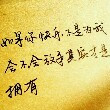 如果你快乐,不是为我
会不会放手其实才是
拥有